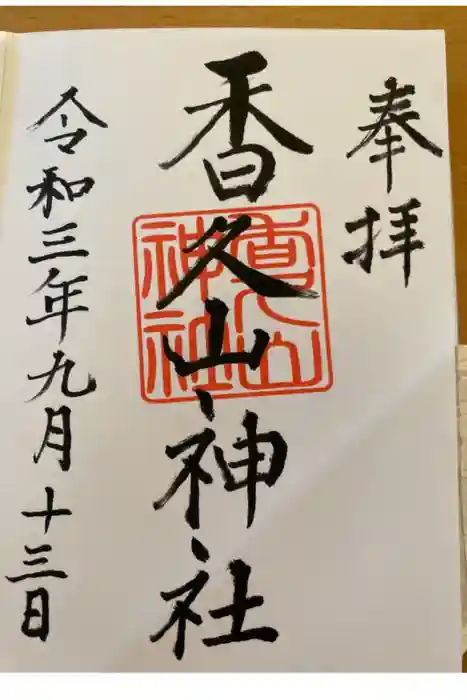 奉拝
香久山神社
香久山
神社
令和三年九月十三日